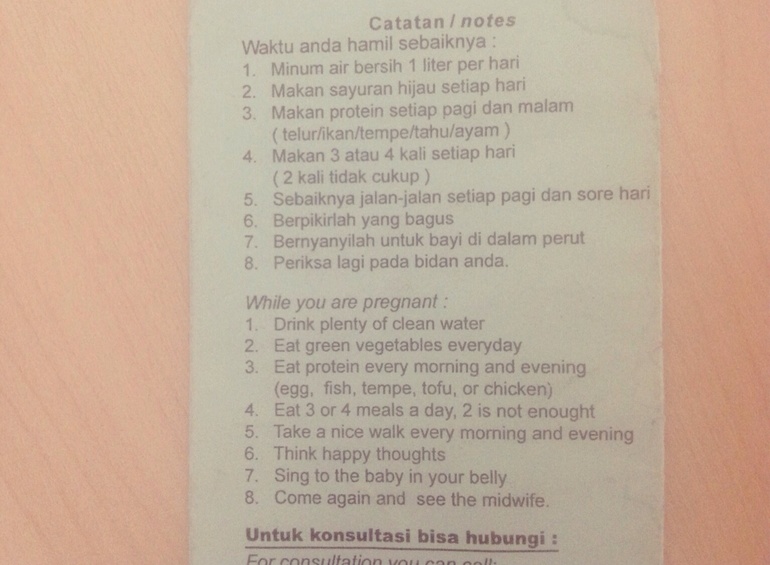 Catatan / notes
Waktu anda hamil sebaiknya :
1. Minum air bersih 1 liter per hari
2. Makan sayuran hijau setiap hari
3. Makan protein setiap pagi dan malam
( telur/ikan/tempe/tahu/ayam )
4. Makan 3 atau 4 kali setiap hari
( 2 kali tidak cukup )
5. Sebaiknya jalan-jalan setiap pagi dan sore hari
6. Berpikirlah yang bagus
7. Bernyanyilah untuk bayi di dalam perut
8. Periksa lagi pada bidan anda.
While you are pregnant :
1. Drink plenty of clean water
2. Eat green vegetables everyday
3. Eat protein every morning and evening
(egg, fish, tempe, tofu, or chicken)
4. Eat 3 or 4 meals a day, 2 is not enought
5. Take a nice walk every morning and evening
6. Think happy thoughts
7. Sing to the baby in your belly
8. Come again and see the midwife.
Untuk konsultasi bisa hubungi :
For consultation you can call: